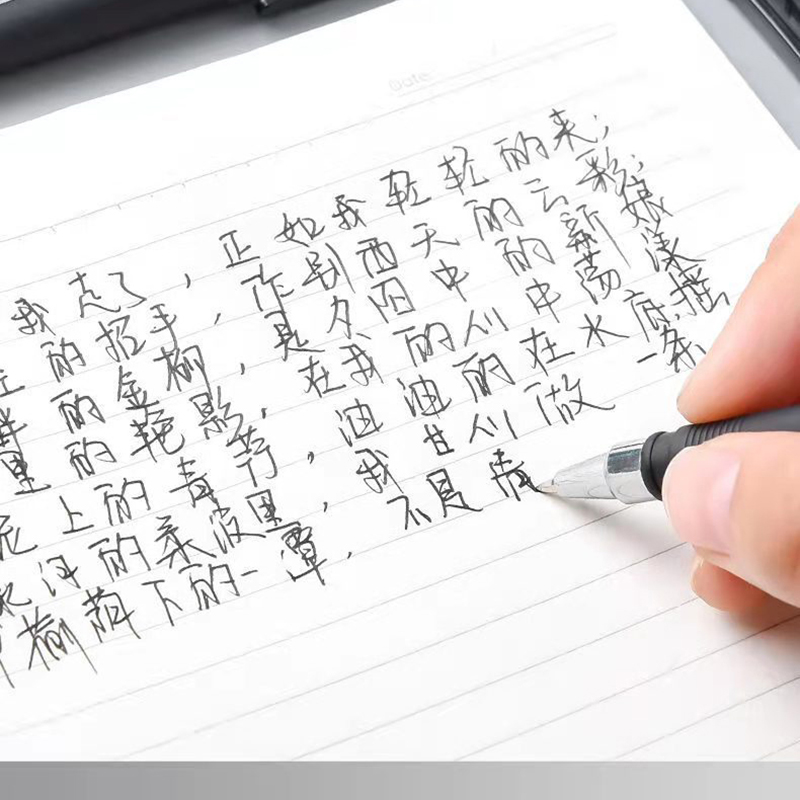 Date
我走了，正如我轻轻的来；
的招手，作别西天的云彩；
畔的金柳，是夕阳中的新娘
里的艳影，在我的心中荡漾
泥上的青荇，油油的在水底摇
河的柔波里，我甘心做一条
榆荫下的一潭，不是清